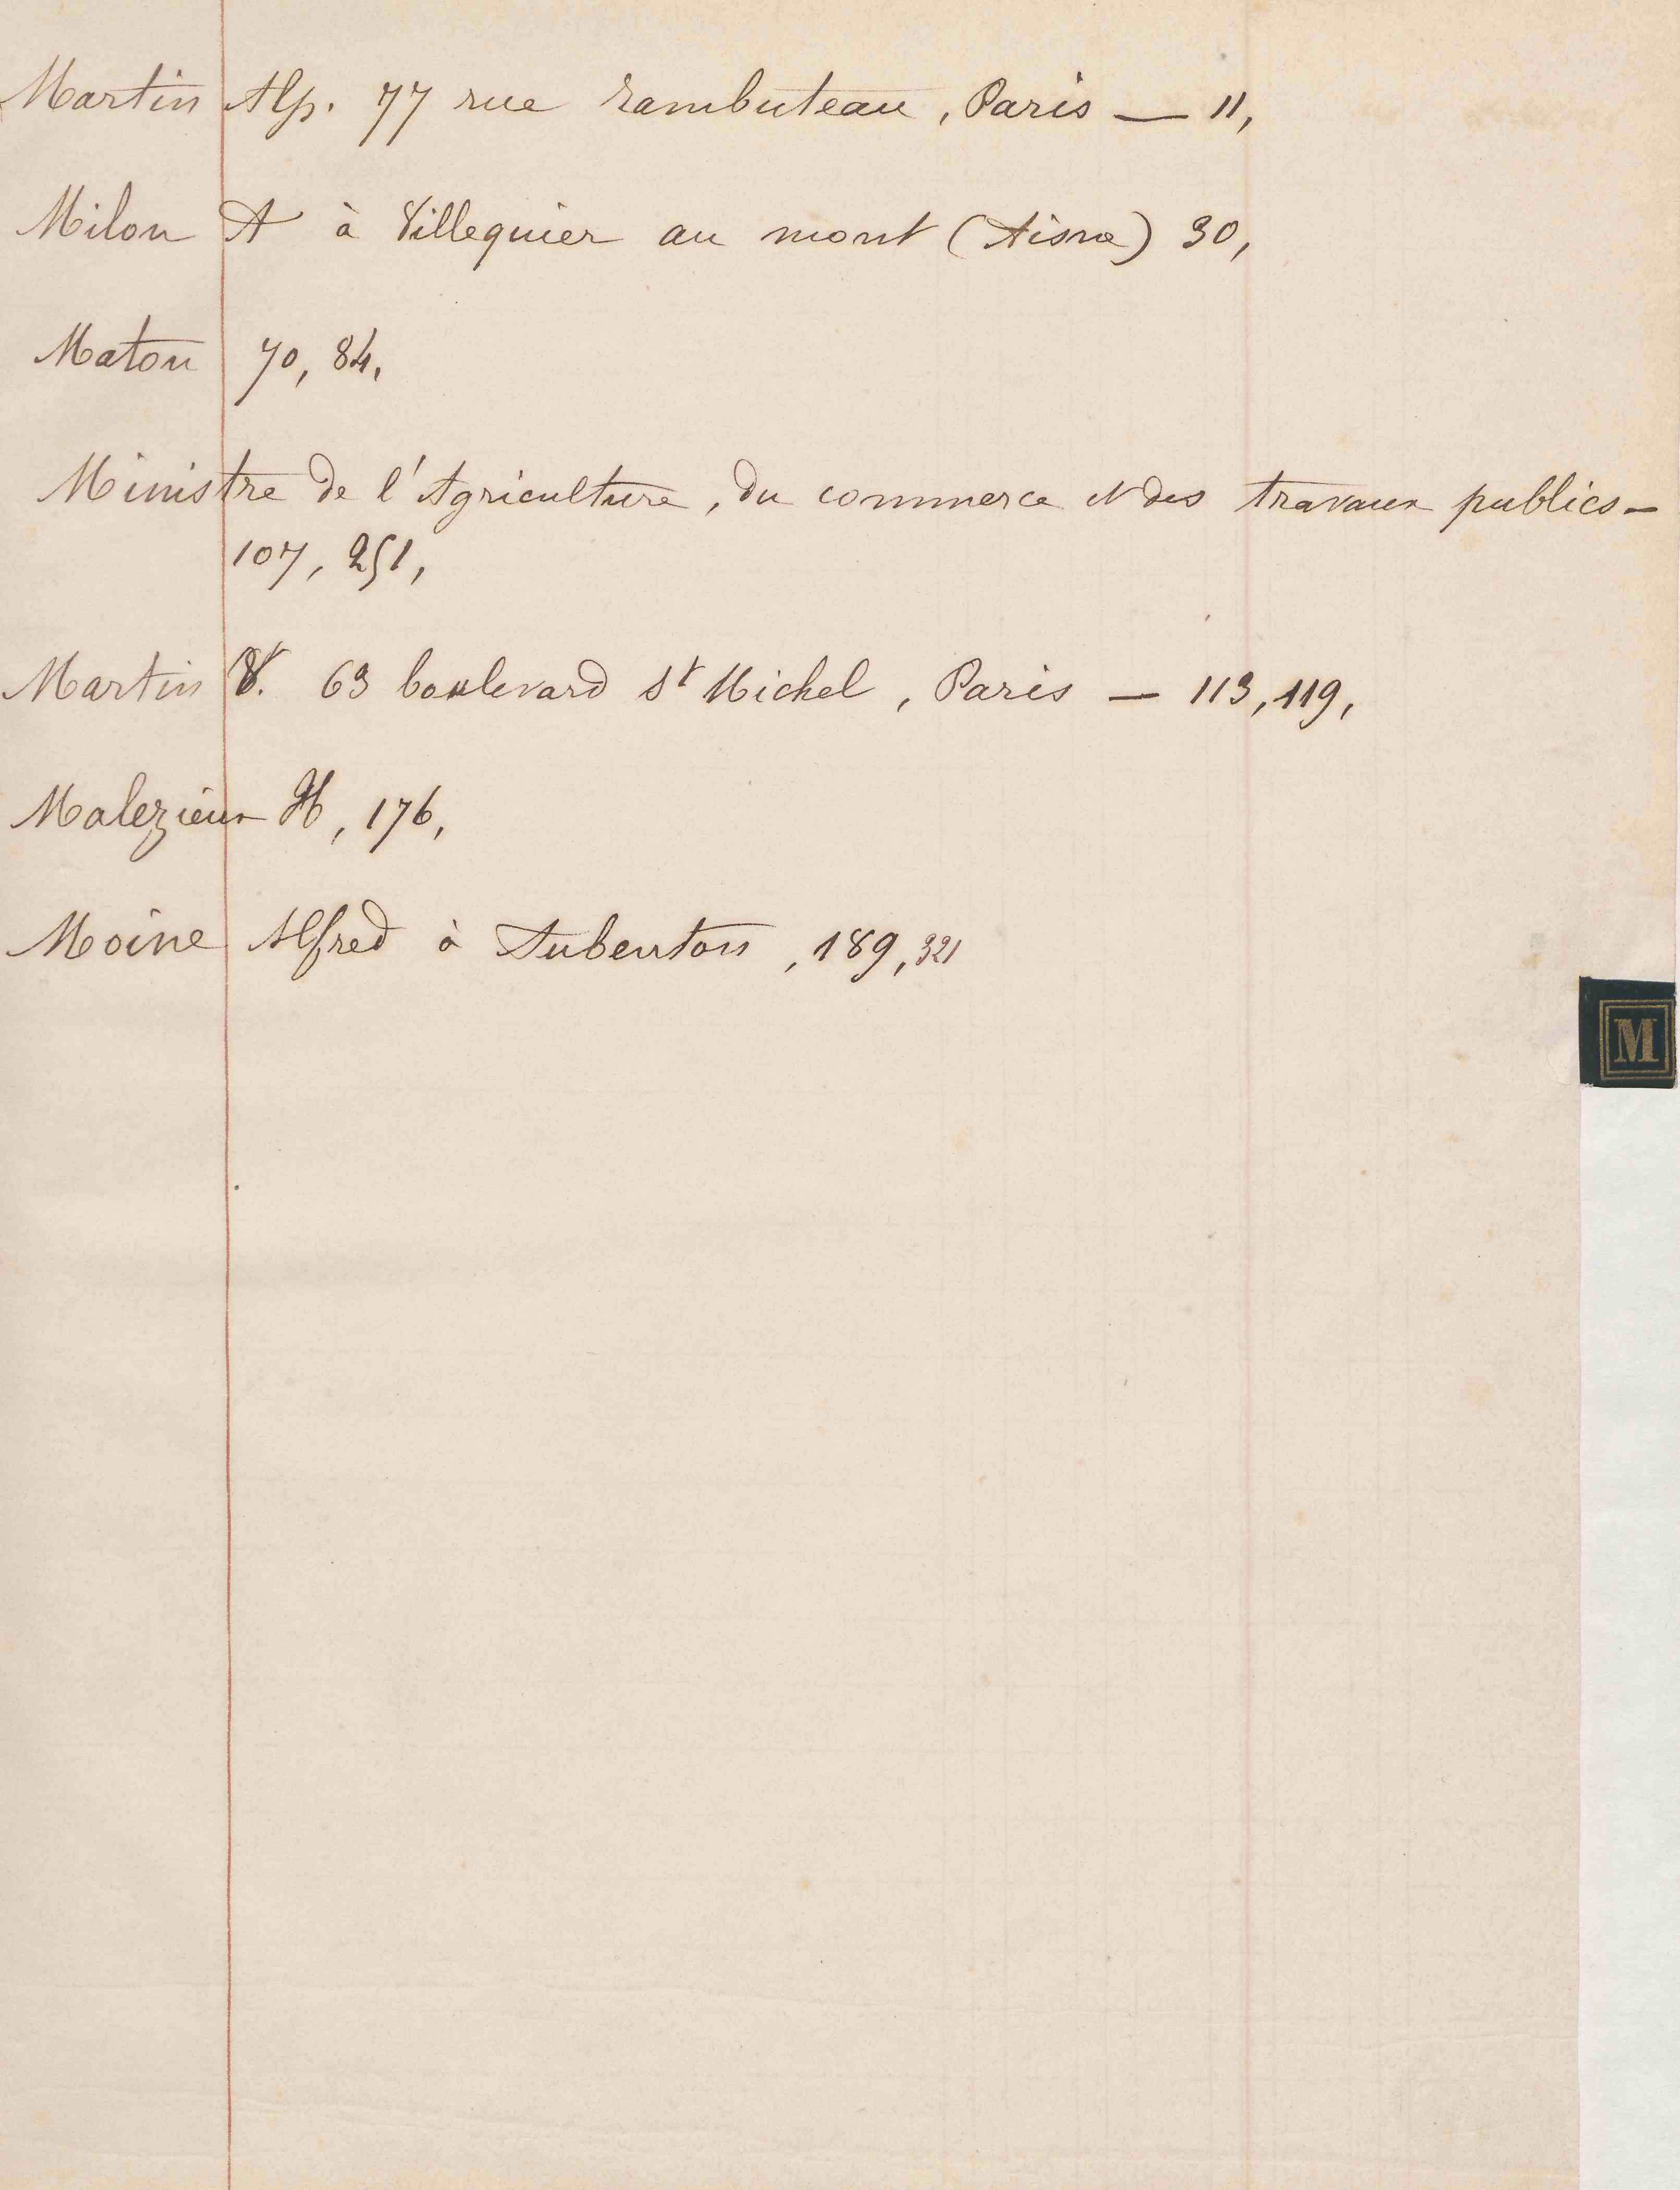 Martin Alp. 77 rue rambuteau, Paris — 11,
Milon A à Villequier au mont (Aisne) 30,
Maton 70, 84,
Ministre de l'Agriculture, du commerce et des travaux publics —
107, 251,
Martin V. 63 boulevard St Michel, Paris — 113, 119,
Malezieux H, 176,
Moine Alfred à Aubenton, 189, 321
M